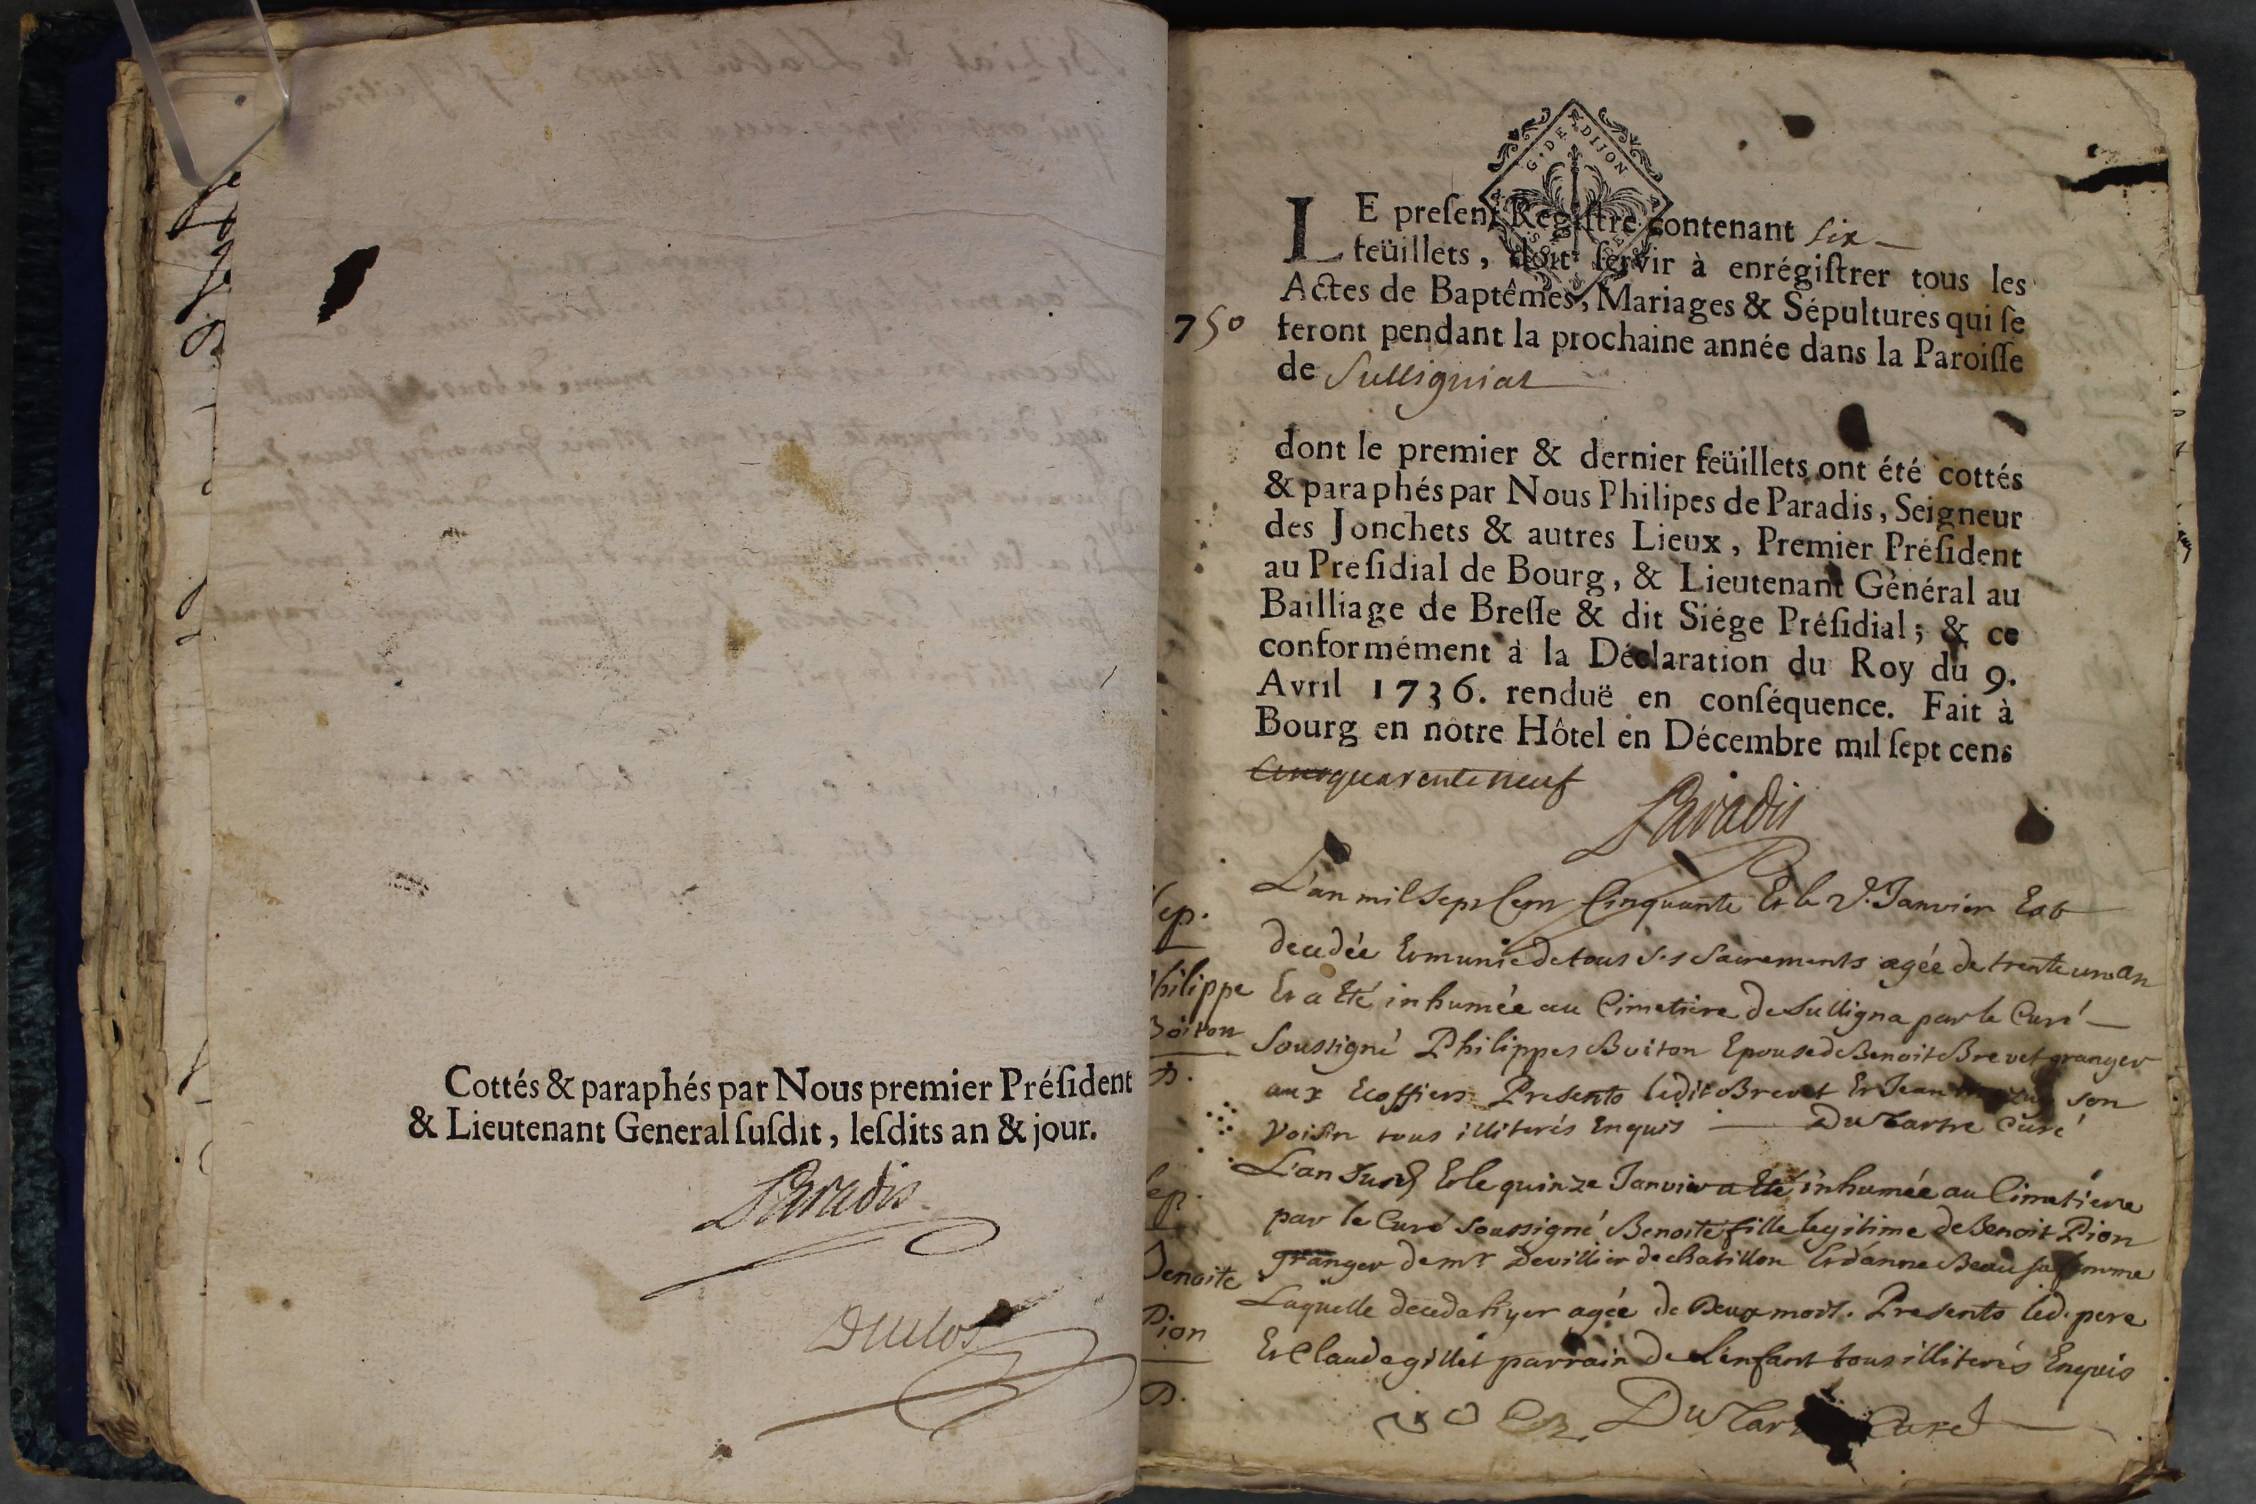 Cottés & paraphés par Nous premier Préſident
& Lieutenant General ſuſdit, leſdits an & jour.
Paradis
Duclos
G. DE DIJON
LE preſent Regiſtre contenant six
feüillets, doit ſervir à enrégiſtrer tous les
Actes de Baptêmes, Mariages & Sépultures qui ſe
750
feront pendant la prochaine année dans la Paroiſſe
de Sulligniat
dont le premier & dernier feüillets ont été cottés
& paraphés par Nous Philipes de Paradis, Seigneur
des Jonchets & autres Lieux, Premier Préſident
au Preſidial de Bourg, & Lieutenant Général au
Bailliage de Breſſe & dit Siége Préſidial; & ce
conformément à la Déclaration du Roy du 9.
Avril 1736. renduë en conſéquence. Fait à
Bourg en nôtre Hôtel en Décembre mil ſept cens
quarente neuf
Paradis
L'an mil sept Cent Cinquante Et le 2e. Janvier Est
Sep.
decedée Et munie de tous ses sacrements agée de trente un an
Philippe
Et a Eté inhumée au Cimetiere de Sulligna par le Curé
Boiton
Soussigné Philippes Boiton Epouse de Benoit Brevet granger
aux Ecoffiers Presents ledit Brevet Et Jean son
Voisin tous illiterés Enquis Dutartre Curé
L'an Susd Et le quinze Janvier a Eté inhumée au Cimetiere
Sep.
par le Curé Soussigné Benoite fille legitime de Benoit Pion
granger de mr Devillier de chatillon Et d'anne Beau sa femme
Benoite
Laquelle deceda hyer agée de Deux mois. Presents led. pere
Pion
Et Claude gillet parrain de L'enfant tous illiterés Enquis
Dutartre Curé